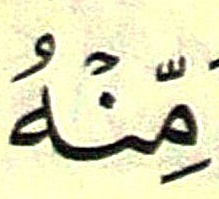 مِّنۡهُ